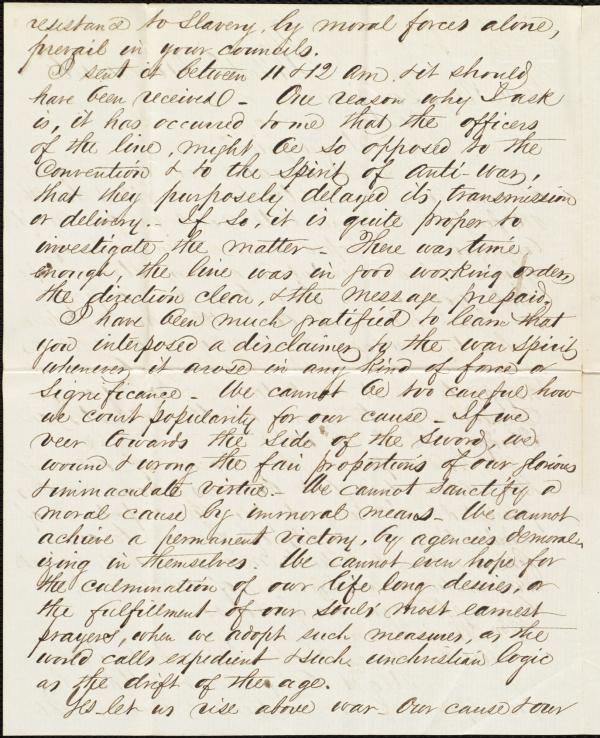 resistance to Slavery, by moral forces alone,
prevail in your councils.
I sent it between 11 & 12 am, & it should
have been received - One reason why I ask
is, it has occurred to me that the officers
of the line, might be so opposed to the
Convention & to the Spirit of Anti-war,
that they purposely delayed its transmission
or delivery. - If so, it is quite proper to
investigate the matter - There was time
enough, the line was in good working order,
the direction clear, & the message prepaid.
I have been much gratified to learn that
you interposed a disclaimer to the war spirit
whenever it arose in any kind of force or
significance - We cannot be too careful how
we court popularity for our cause - If we
veer towards the side of the Sword, we
wound & wrong the fair proportions of our glorious
& immaculate virtue. - We cannot sanctify a
moral cause by immoral means - We cannot
achieve a permanent victory, by agencies demoral-
izing in themselves. We cannot even hope for
the culmination of our life long desires, or
the fulfillment of our souls' most earnest
prayers, when we adopt such measures, as the
world calls expedient & such unchristian logic
as the drift of the age.
Yes - let us rise above war - Our cause & our